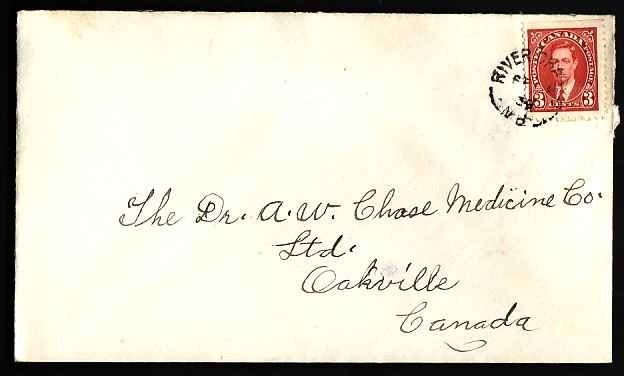 POSTES CANADA POSTAGE
3 CENTS 3
RIVER
N.B.
The Dr. A. W. Chase Medicine Co.
Ltd.
Oakville
Canada